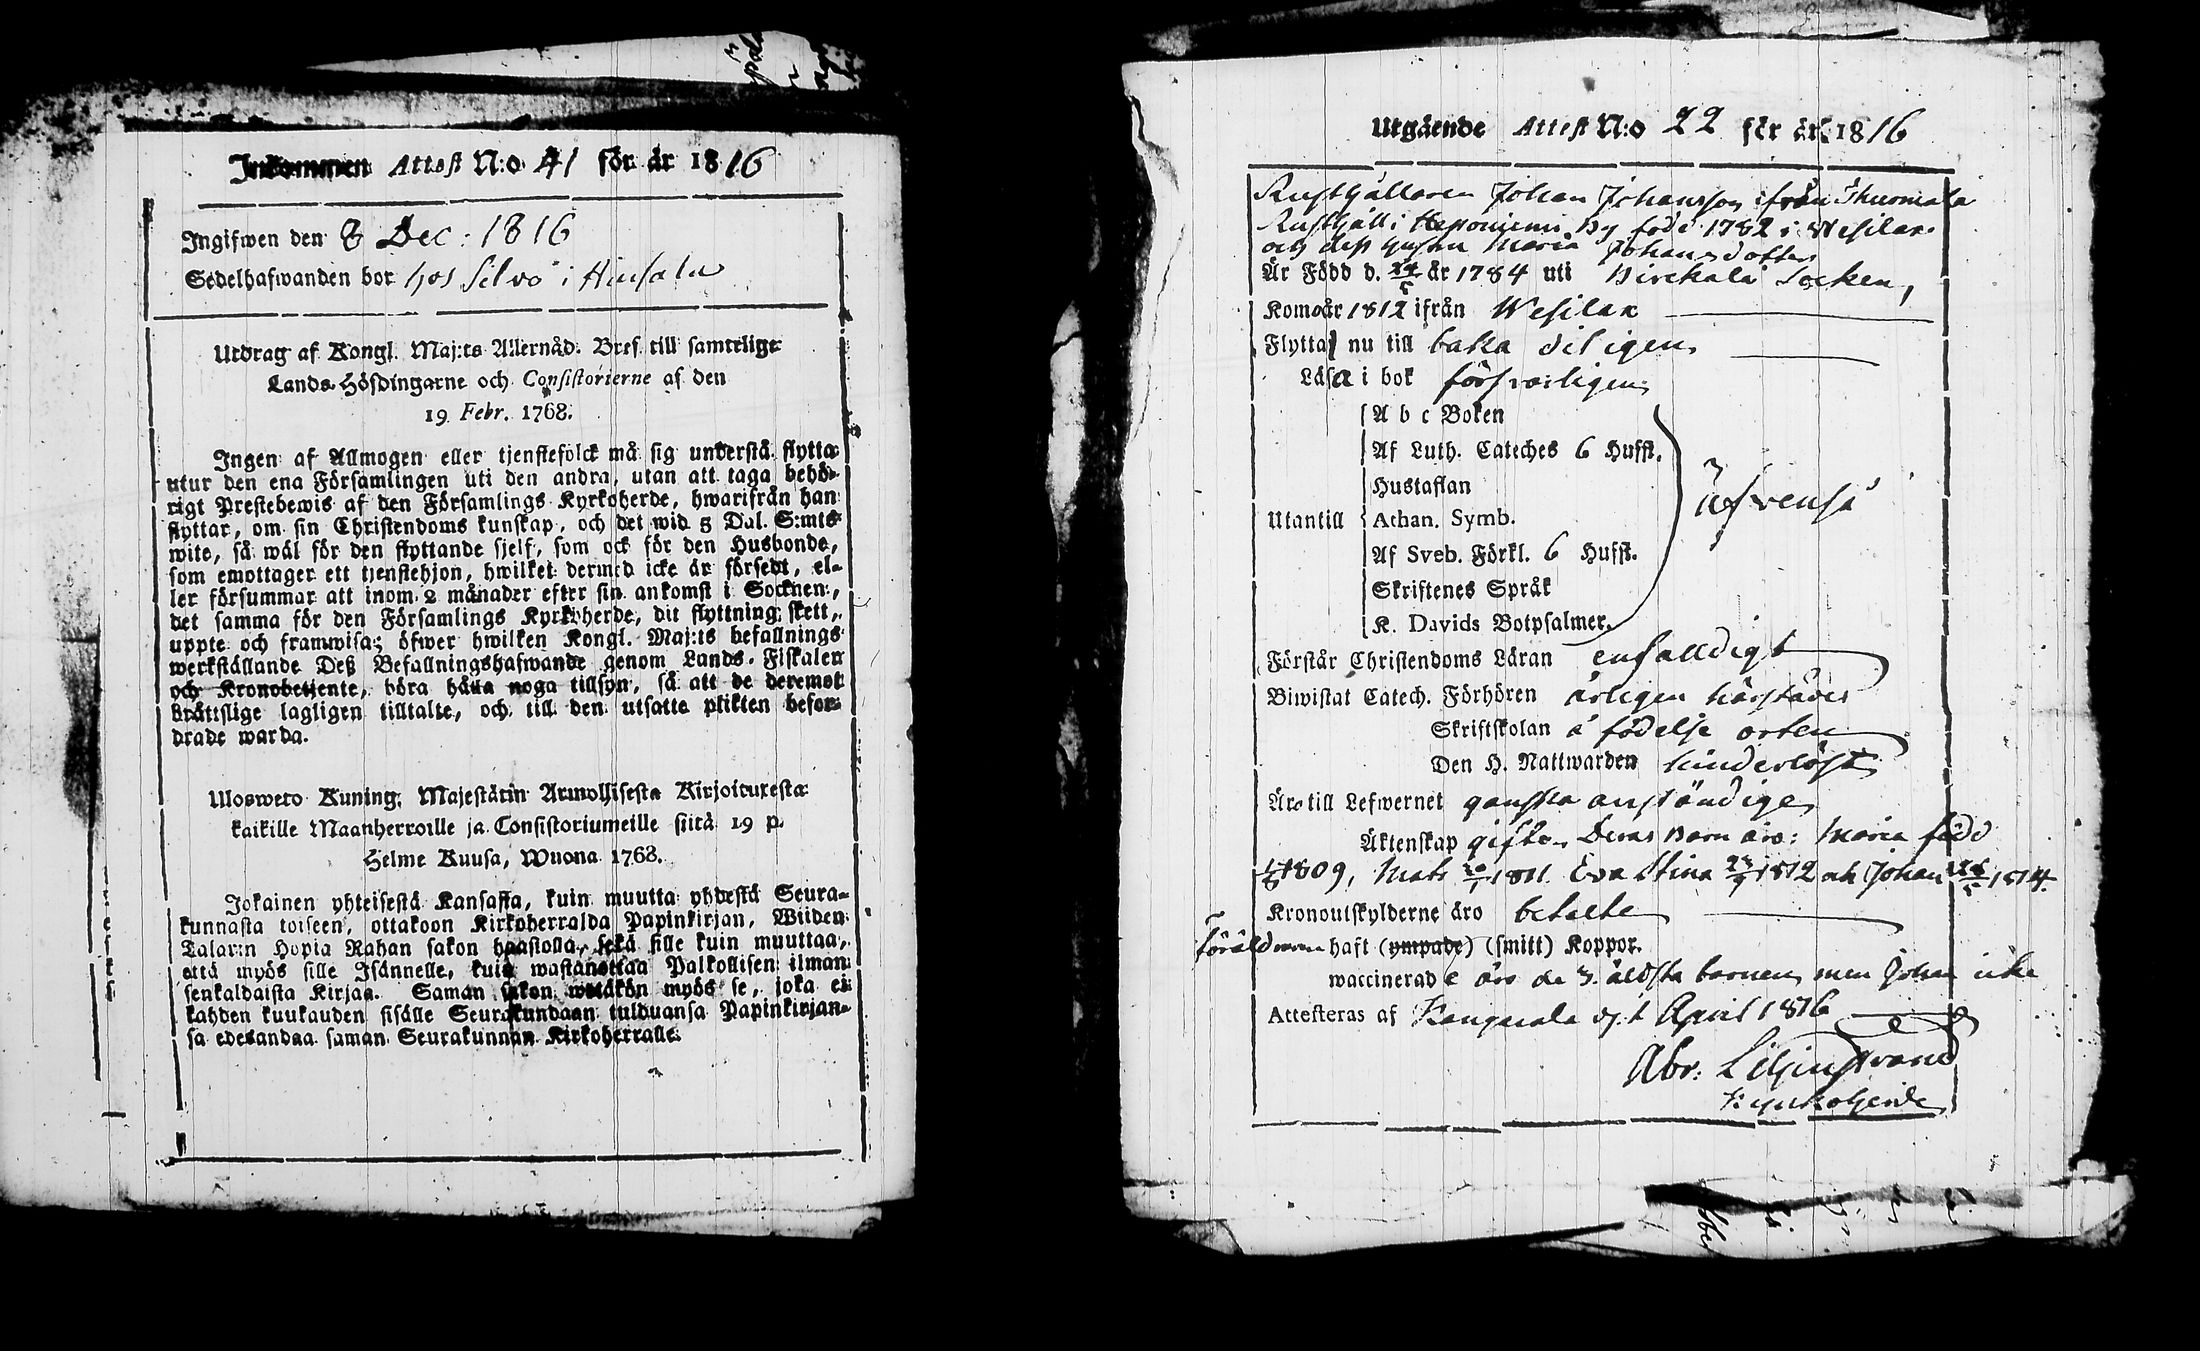 Inkommen Attest N:o 41 för år 1816
Ingifwen den 8 Dec: 1816
Sedelhafwanden bor hos Silvo i Hinsala
Utdrag af Kongl. Maj:ts Allernåd. Bref till samtelige
Lands-Höfdingarne och Consistorierne af den
19 Febr. 1768.
Ingen af Allmogen eller tjenstefolck må sig understå flytta
utur den ena Församlingen uti den andra, utan att taga behö-
rigt Prestebewis af den Församlings Kyrkoherde, hwarifrån han
flyttar, om sin Christendoms kunskap, och det wid 5 Dal. S:mts
wite, så wäl för den flyttande sjelf, som ock för den Husbonde,
som emottager ett tjenstehjon, hwilket dermed icke är försedt, el-
ler försummar att inom 2 månader efter sin ankomst i Socknen,
det samma för den Församlings Kyrkoherde, dit flyttning skett,
uppte och framwisa; öfwer hwilken Kongl. Maj:ts befallnings
werkställande Deß Befallningshafwande genom Lands-Fiskaler
och Kronobetjente, böra hålla noga tillsyn, så att de deremot
bråttslige lagligen tilltalte, och till den utsatte plikten befor-
drade warda.
Ulosweto Kuning. Majestätin Armollisesta Kirjoituxesta
kaikille Maanherroille ja Consistoriumeille siitä 19 p.
Helme Kuusa, Wuona 1768.
Jokainen yhteisestä Kansasta, kuin muutta yhdestä Seura-
kunnasta toiseen, ottakoon Kirkoherralda Papinkirjan, Wiiden
Talarin Hopia Rahan sakon haastolla, sekä sille kuin muuttaa,
että myös sille Isännelle, kuin wastanottaa Palkollisen ilman
senkaldaista Kirjaa. Saman sakon wetäkön myös se, joka ei
kahden kuukauden sisälle Seurakundaan tulduansa Papinkirjan-
sa edesandaa saman Seurakunnan Kirkoherralle.
Utgående Attest N:o 22 för år 1816
Rusthållaren Johan Johansson ifrån Ihuomala
Rusthåll i Heponiemi by född 1782 i Wesilax
och dess hustru Maria Johansdotter
Är Född d. 24/5 år 1784 uti Birckala Socken,
Kom år 1812 ifrån Wesilax
Flytta nu till baka dit igen
Läsa i bok försvarligen
A b c Boken
Af Luth. Cateches 6 Hufst.
Hustaflan
Utantill Athan. Symb.
Af Sveb. Förkl. 6 Hufst.
Skriftenes Språk
K. Davids Botpsalmer.
äfvenså
Förstår Christendoms Läran enfalldigt
Biwistat Catech. Förhören årligen härstädes
Skriftskolan å födelse orten
Den H. Nattwarden hinderlöst
Äro till Lefwernet ganska anständige
Äktenskap gifte. Deras Barn äro: Maria född
1809, Mats 20/1 1811. Eva Stina 23/9 1812 och Johan 1814
Kronoutskylderne äro betalte
Föräldrarne haft (ympade) (smitt) Koppor.
waccinerade äro de 3. äldsta barnen men Johan icke
Attesteras af Kangasala d. 1 April 1816
Abr: Liljenstrand
Kyrkoherde